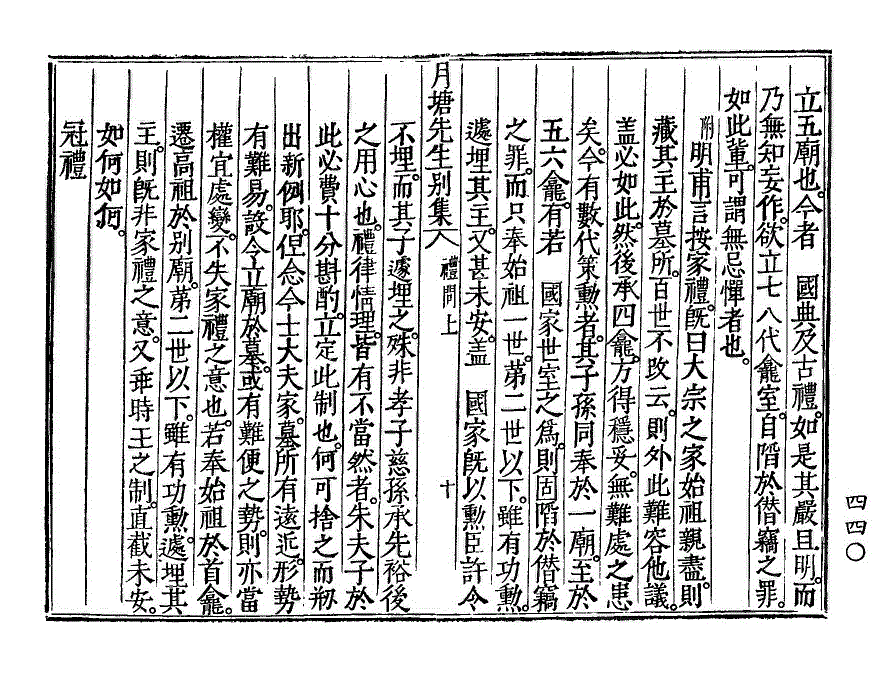 立五廟也。今者　國典及古禮。如是其嚴且明。而
乃無知妄作。欲立七八代龕室。自陷於僭竊之罪。
如此輩。可謂無忌憚者也。
附明甫言按家禮。旣曰大宗之家始祖親盡。則
藏其主於墓所。百世不改云。則外此難容他議。
盖必如此。然後承四龕。方得穩妥。無難處之患
矣。今有數代策勳者。其子孫同奉於一廟。至於
五六龕。有若　國家世室之爲。則固陷於僭竊
之罪。而只奉始祖一世。第二世以下。雖有功勳。
遽埋其主。又甚未安。盖　國家旣以勳臣許令
月塘先生別集八　禮問上　十
不埋。而其子遽埋之。殊非孝子慈孫承先裕後
之用心也。禮律情理。皆有不當然者。朱夫子於
此必費十分斟酌。立定此制也。何可捨之而刱
出新例耶。但念今士大夫家。墓所有遠近。形勢
有難易。設令立廟於墓。或有難便之勢。則亦當
權宜處變。不失家禮之意也。若奉始祖於首龕。
遷高祖於別廟。第二世以下。雖有功勳。遽埋其
主。則旣非家禮之意。又乖時王之制。直截未安。
如何如何。
冠禮
四四〇